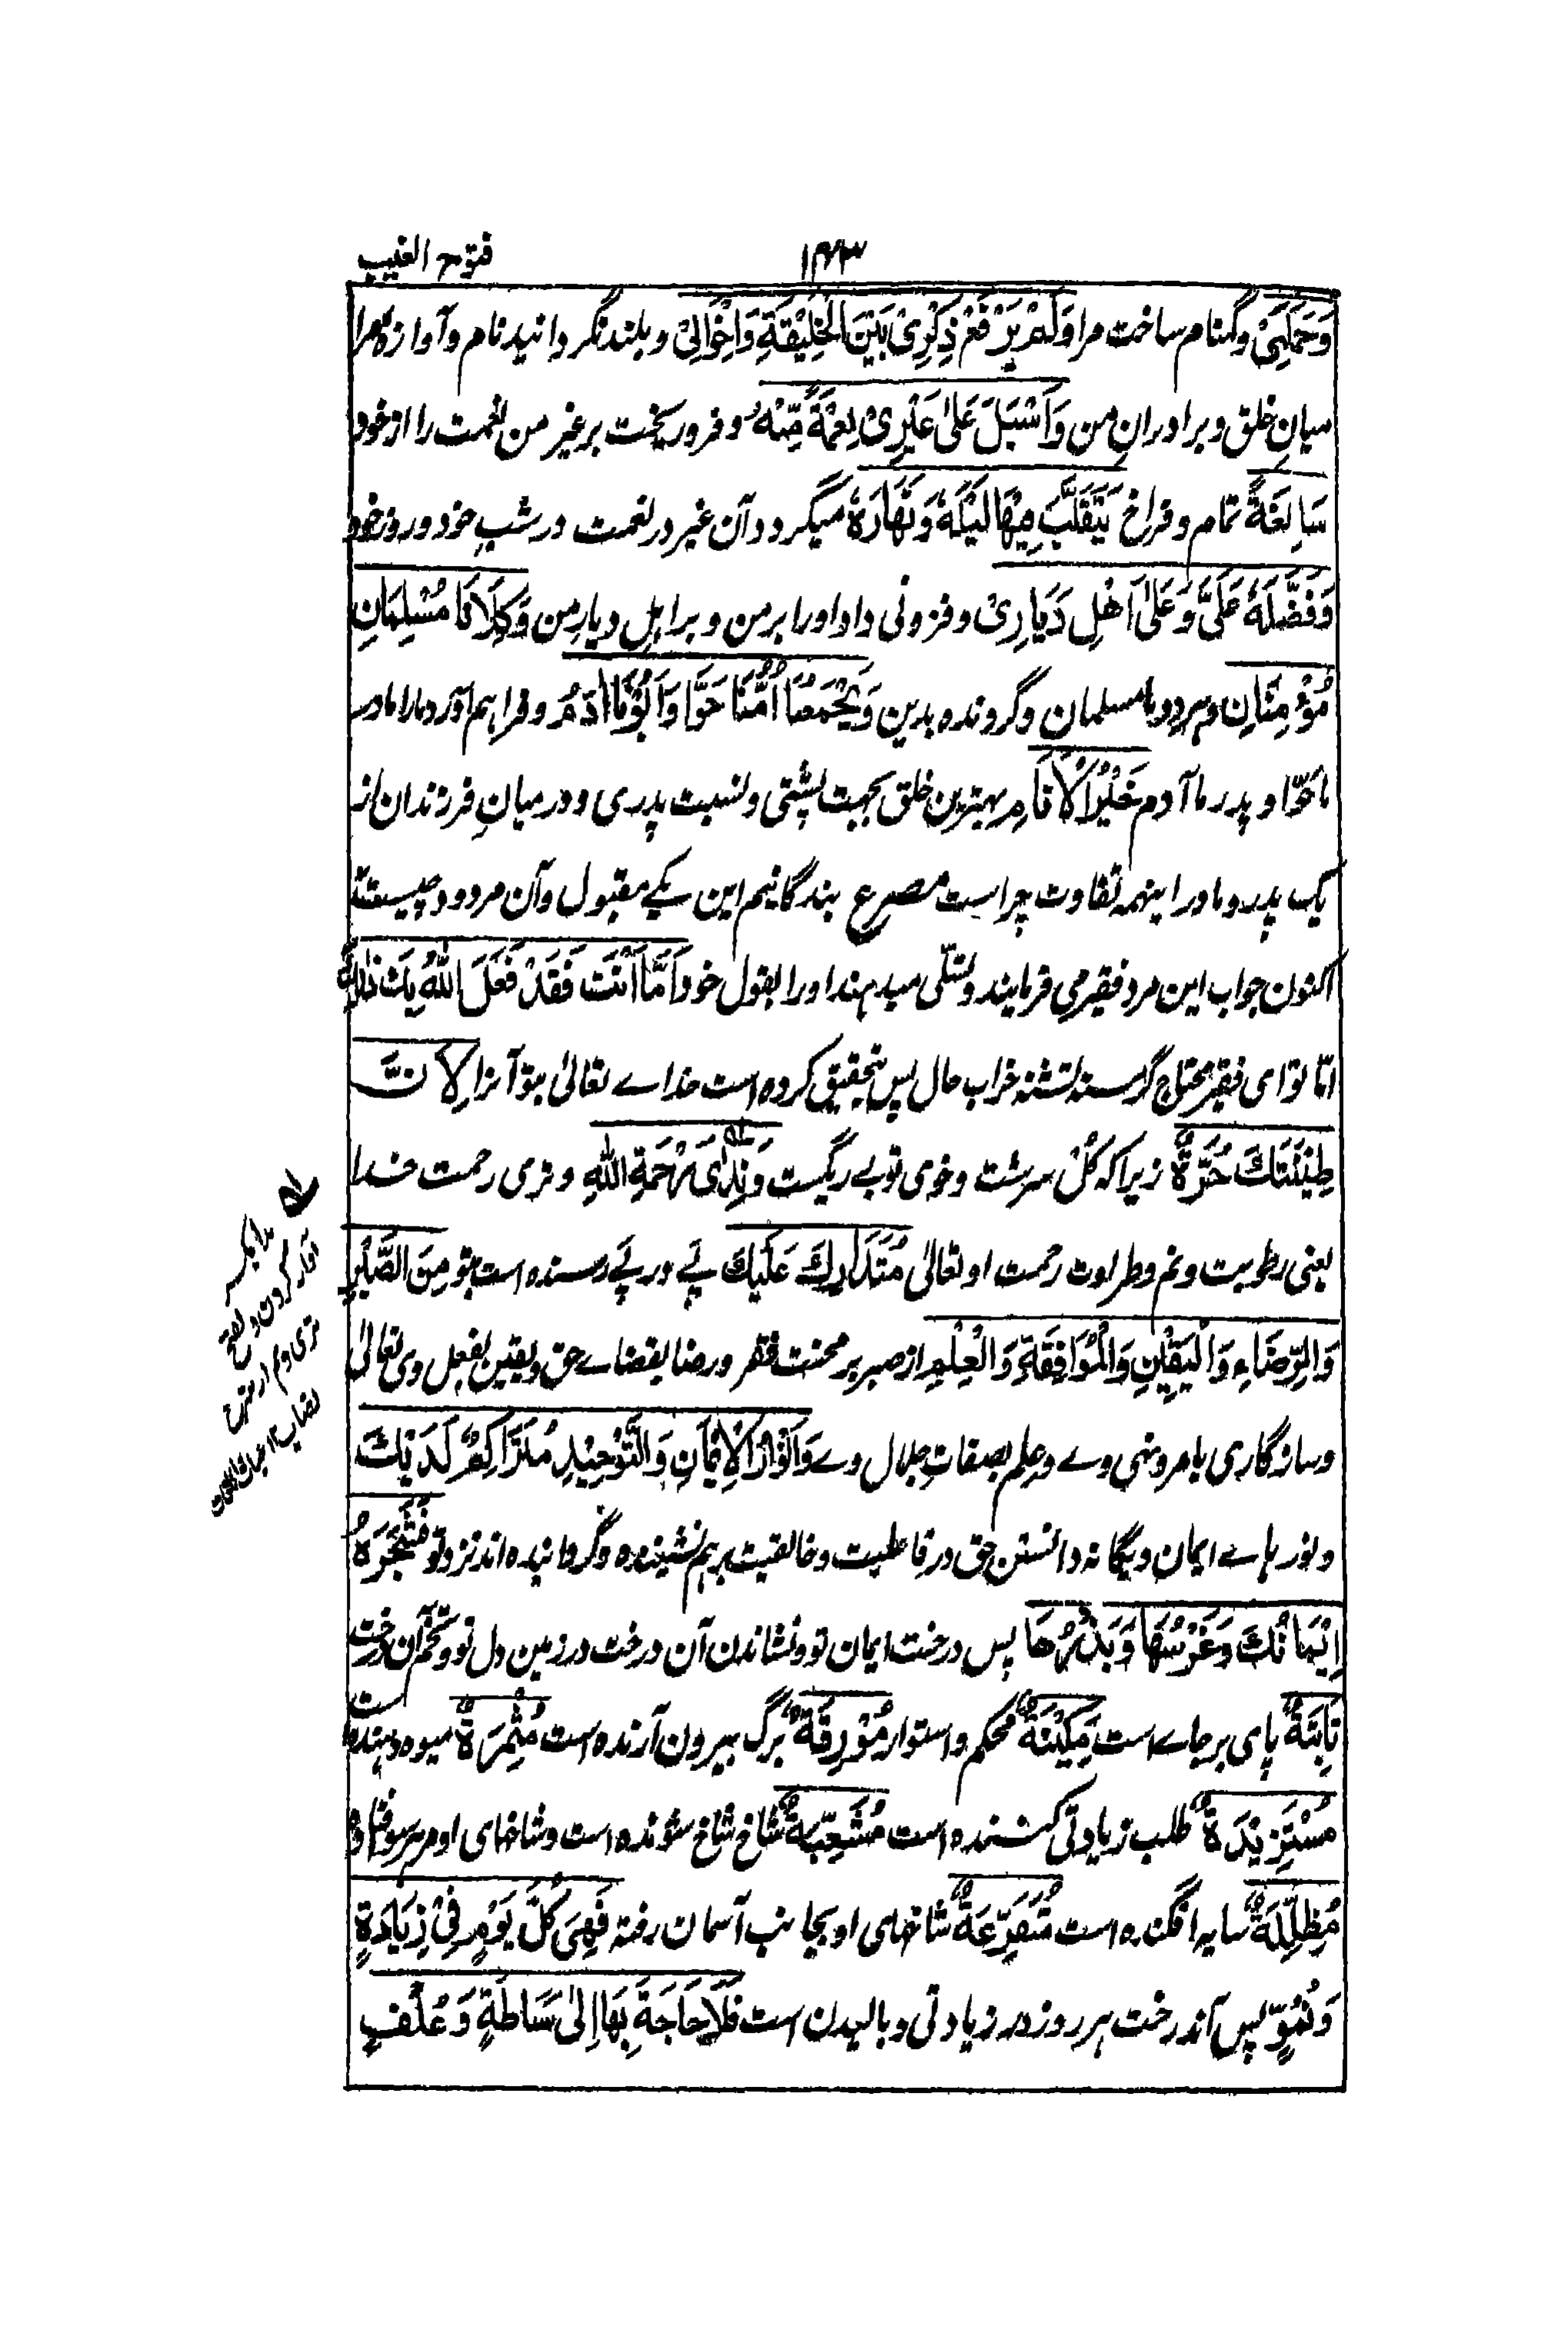 ۱۴۳
فتوح الغیب
وَحَمَلَنِیْ وگمنام ساخت مرا وَلَمْ یَرْفَعْ ذِکْرِیْ بَیْنَ الْخَلِیْقَةِ وَاِخْوَانِیْ وبلند نگردانید نام وآوازۀ مرا
میانِ خلق وبرادرانِ من وَاَسْبَلَ عَلٰی غَیْرِیْ نِعْمَةً مِّنْهُ وفروریخت بر غیر من نعمت را از خود
سَابِغَةً تمام وفراخ یَتَقَلَّبُ فِیْهَا لَیْلَهٗ وَنَهَارَهٗ میگردد آن غیر در نعمت در شبِ خود وروز خود
وَفَضَّلَهٗ عَلَیَّ وَعَلٰی اَهْلِ دَیَارِیْ وفزونی داد اورا بر من وبر اہلِ دیارِ من وَکِلَانَا مُسْلِمَانِ
مُؤْمِنَانِ وہر دو ما مسلمان وگرونده بدین وَیَجْمَعُنَا اُمُّنَا حَوَّا وَاَبُوْنَا اٰدَمُ وفراہم آورد ما را مادر
ما حوّا وپدر ما آدم خَیْرُ الْاَنَامِ بہترین خلق بجہت پشتی ونسبت پدری ودر میانِ فرزندان از
یک پدر ومادر اینہمہ تفاوت چراست مصرع بندگانیم این یکے مقبول وآن مردود چیست
اکنون جواب این مرد فقیر می فرمایند وتسلّی میدہند اورا بقول خود اَمَّا اَنْتَ فَقَدْ فَعَلَ اللهُ بِكَ ذٰلِكَ
امّا تو ای فقیر محتاج گرسنہ تشنہ خراب حال پس بتحقیق کرده است خداے تعالیٰ بتو آنرا لِاَنَّ
طِیْنَتَكَ حُرَّةٌ زیرا کہ گلْ سرشت وخوی تو بے ریگست وَنِدٰی رَحْمَةِ اللهِ وتری رحمت خدا
یعنی رطوبت ونم وطراوت رحمت او تعالیٰ مُتَدَارِكٌ عَلَیْكَ پَے در پَے رسنده است بتو مِنَ الصَّبْرِ
وَالرِّضَاءِ وَالْیَقِیْنِ وَالْمُوَافَقَةِ وَالْعِلْمِ از صبر بر محنت فقر ورضا بقضاے حق ویقین بفعل وی تعالیٰ
وسازگاری بامر ونہی وے وعلم بصفاتِ جلال وے وَاَنْوَارُ الْاِیْمَانِ وَالتَّوْحِیْدِ مُتَرَاکِمٌ لَدَیْكَ
ونورہاے ایمان ویگانہ دانستن حق در فاعلیت وخالقیت برہم نشیننده وگردانیده اند نزد تو فَشَجَرَةُ
اِیْمَانِكَ وَغَرْسُهَا وَبَذْرُهَا پس درخت ایمان تو ونشاندن آن درخت در زمین دل تو وتخم آن درخت
ثَابِتَةٌ پای برجاے است مَکِیْنَةٌ محکم واستوار مُوْرِقَةٌ برگ بیرون آرنده است مُثْمِرَةٌ میوه دہنده است
مُسْتَزِیْدَةٌ طلب زیادتی کننده است مُتَشَعِّبَةٌ شاخ شاخ شونده است وشاخہای او ہر سو
مُظَلِّلَةٌ سایہ افگنده است مُتَفَرِّعَةٌ شاخہای او بجانب آسمان رفتہ فَهِیَ کُلَّ یَوْمٍ فِیْ زِیَادَةٍ
وَنُمُوٍّ پس آندرخت ہر روز در زیادتی وبالیدن است فَلَا حَاجَةَ بِهَا اِلٰی سَاطَةٍ وَعُلَفٍ